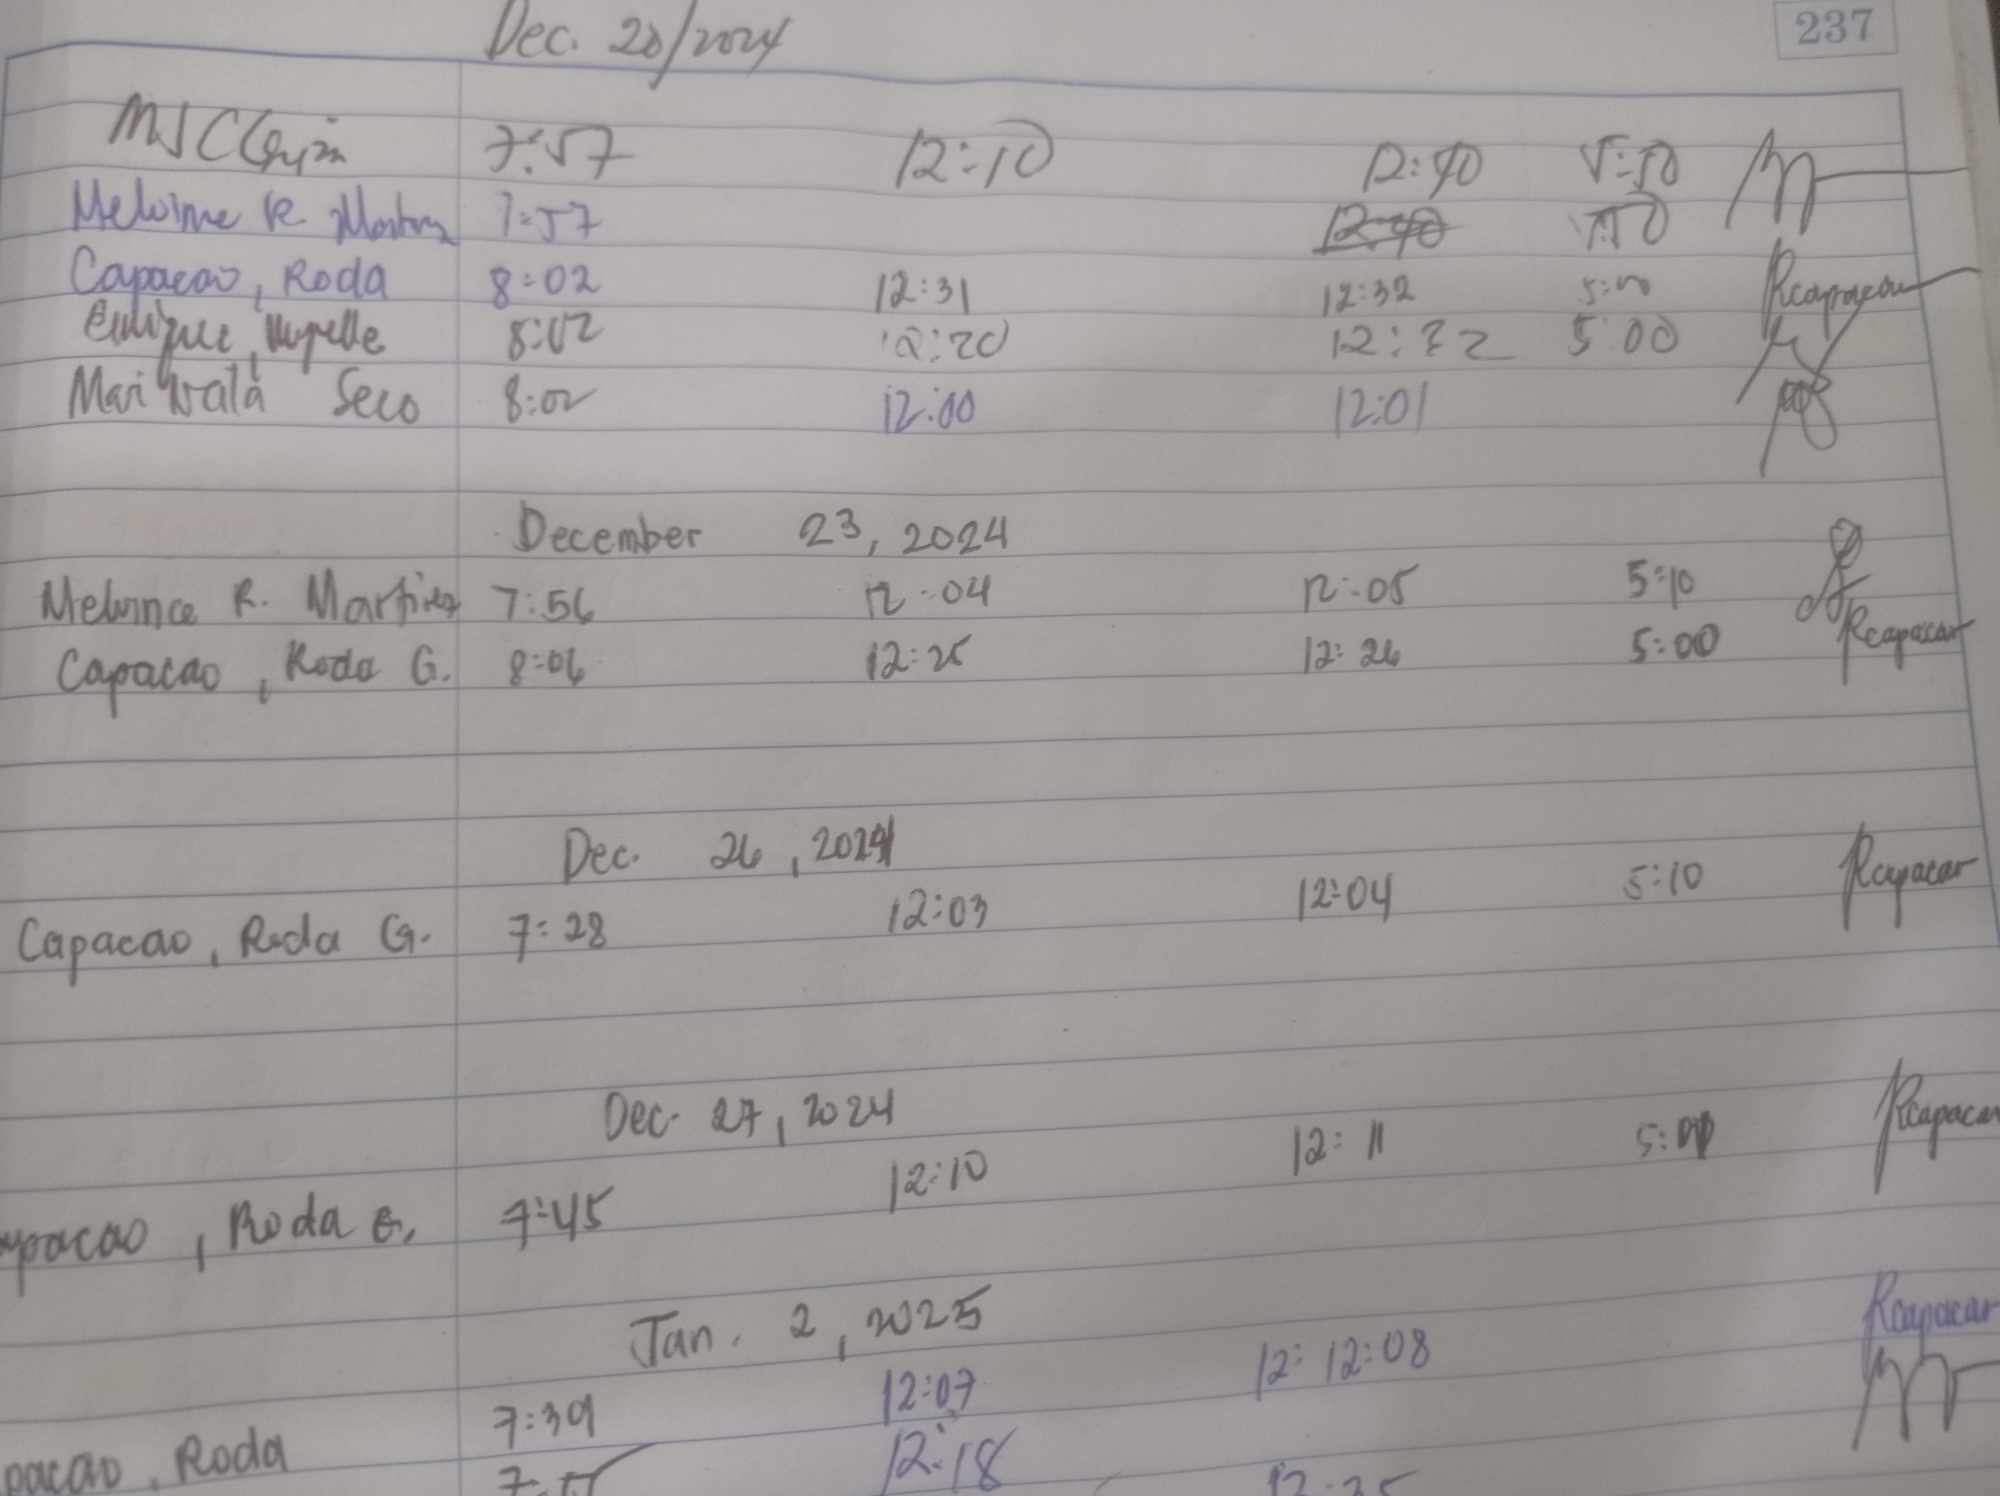 237
Dec. 20/2024
7:57 12:10 12:40 5:50
Melvince R. 7:57 12:40
Capacao, Roda 8:02 12:31 12:32 5:00 Rcapacao
8:02 12:20 12:32 5:00
Mari Seco 8:02 12:00 12:01
December 23, 2024
Melvince R. Martinez 7:56 12:04 12:05 5:10
Capacao, Roda G. 8:06 12:25 12:26 5:00 Rcapacao
Dec. 26, 2024
Capacao, Roda G. 7:28 12:03 12:04 5:10 Rcapacao
Dec. 27, 2024
apacao, Roda G. 7:45 12:10 12:11 5:00 Rcapacao
Jan. 2, 2025
pacao, Roda 7:39 12:07 12: 12:08 Rcapacao
12:18